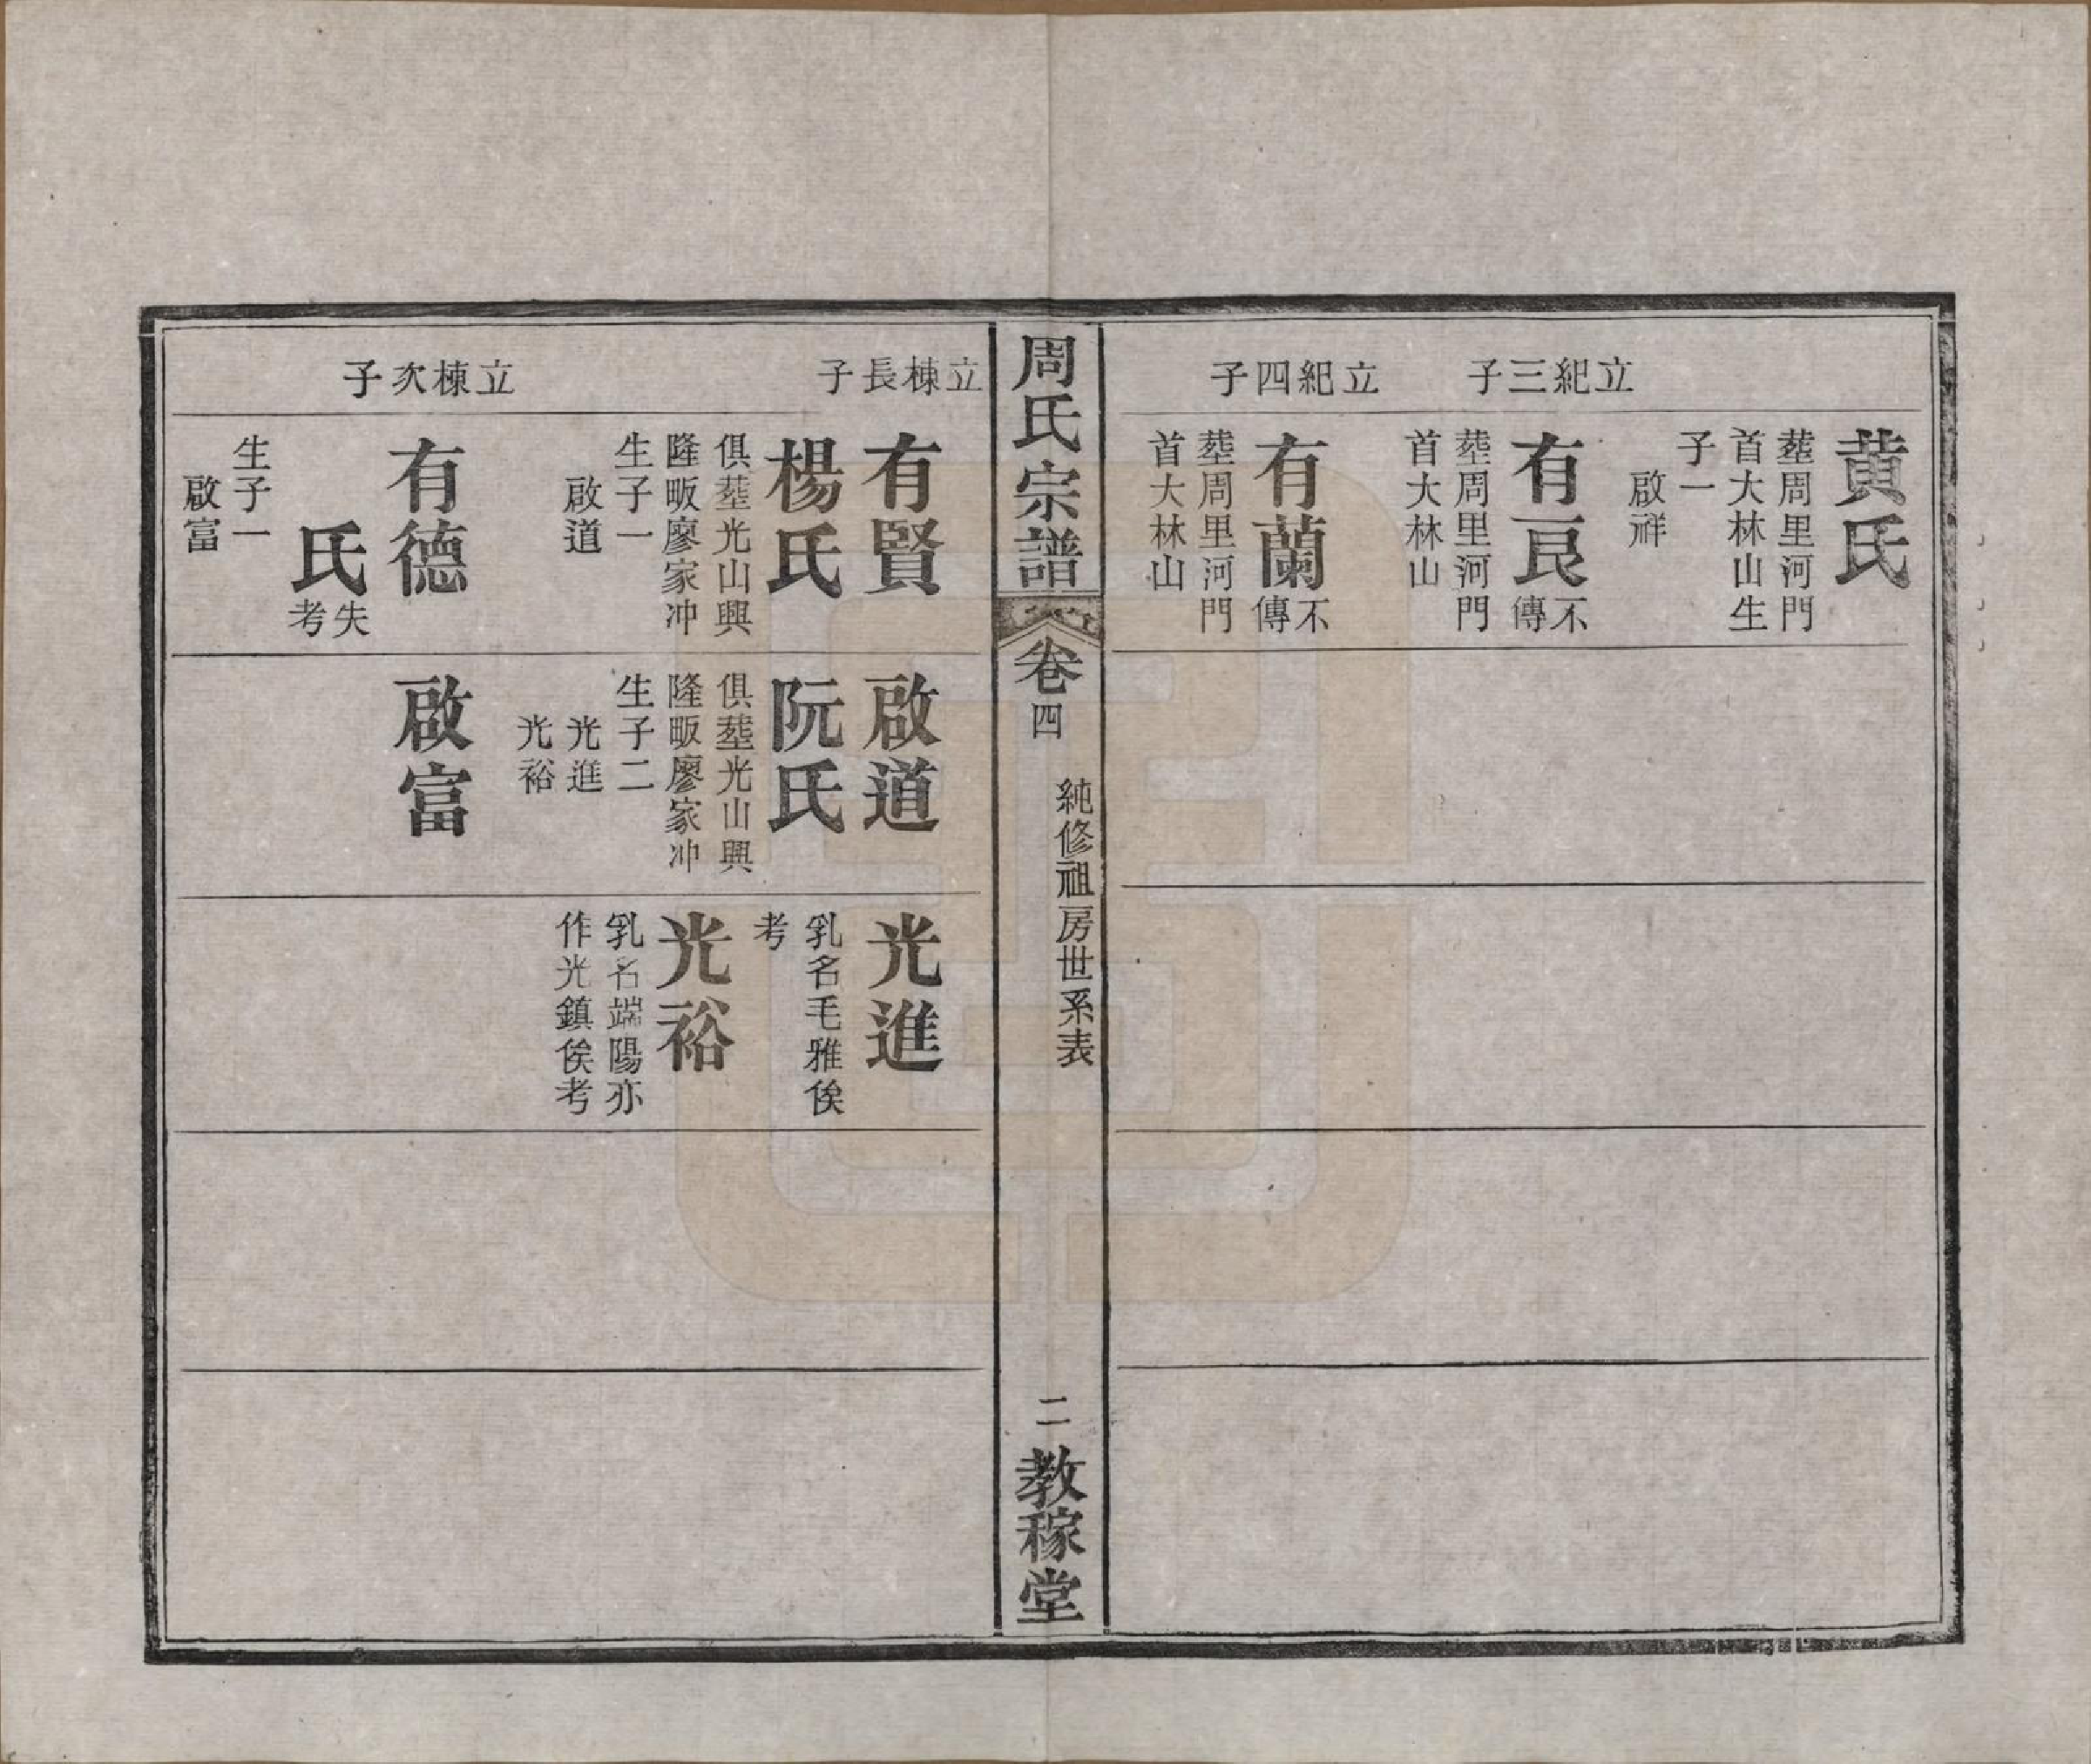 立紀三子
立紀四子
黄氏
塟周里河門
首大林山生
子一
啟祥
有良不傳
塟周里河門
首大林山
有蘭不傳
塟周里河門
首大林山
周氏宗譜
卷四
純修祖房世系表
二
教稼堂
立棟長子
立棟次子
有賢
楊氏
俱塟光山興
隆畈廖家冲
生子一
啟道
有德
氏失考
生子一
啟富
啟道
阮氏
俱塟光山興
隆畈廖家冲
生子二
光進
光裕
啟富
光進
乳名毛雅俟
考
光裕
乳名端陽亦
作光鎮俟考